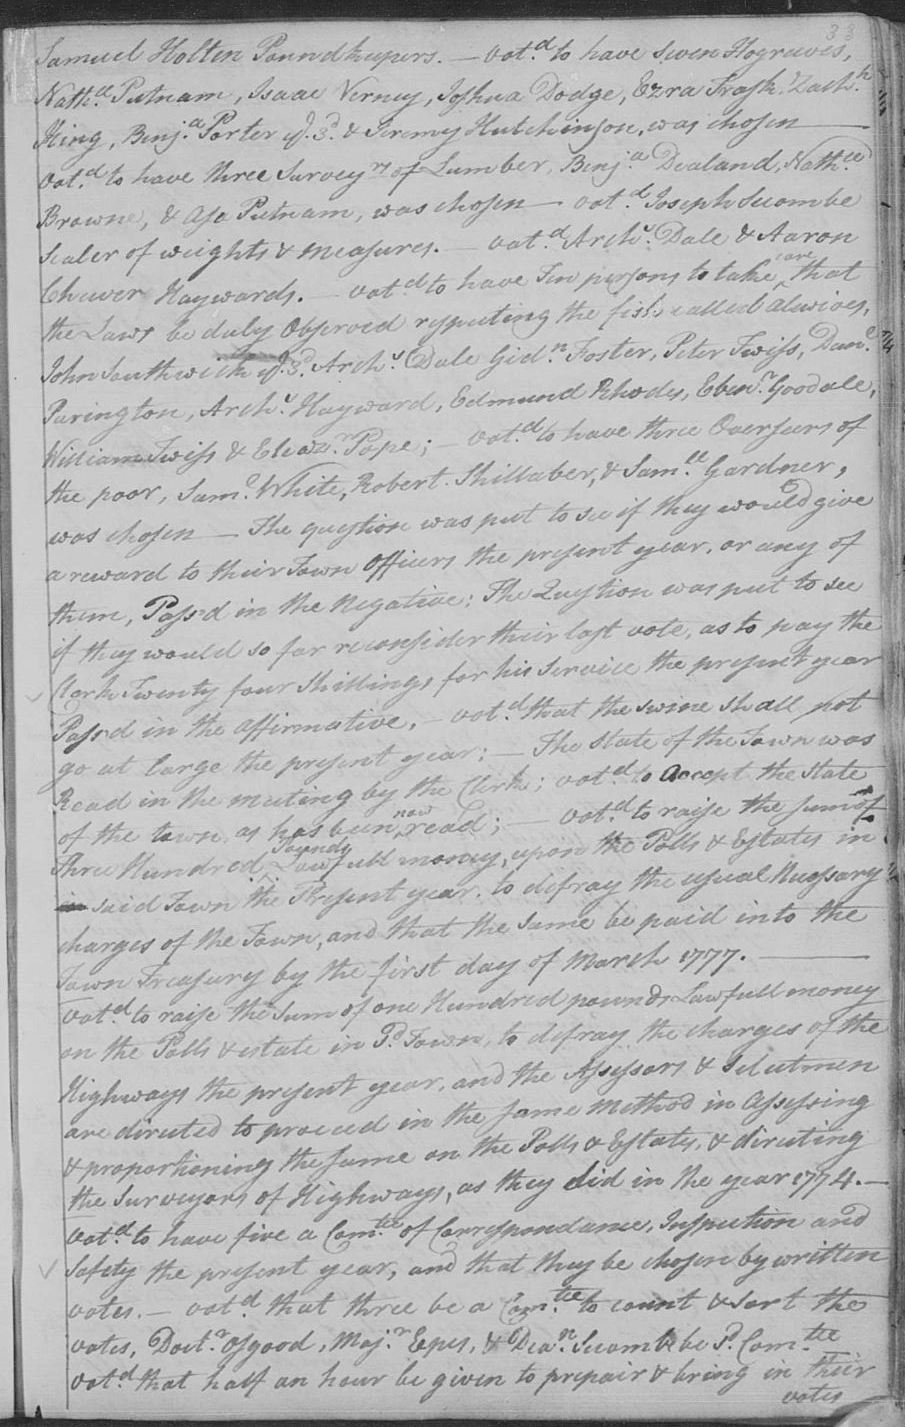 33
Samuel Holten Poundkeepers. — Vot.d to have seven Hogreeves,
Nath.ll Putnam, Isaac Verney, Joshua Dodge, Ezra Trask, Zach.h
King, Benj.a Porter y.e 3.d & Jeremy Hutchinson, was chosen —
Vot.d to have three Survey.rs of Lumber, Benj.a Dealand, Nath.ll
Browne, & Asa Putnam, was chosen — Vot.d Joseph Seccombe
Sealer of weights & measures. — Vot.d Arch.s Dale & Aaron
Cheever Haywards. — Vot.d to have Ten persons to take care that
the Laws be duly Observed respecting the fish called alwives,
John Southwick y.e 3.d Arch.s Dale Gid.n Foster, Peter Twiss, Dan.l
Purington, Arch.s Hayward, Edmund Rhodes, Eben.r Goodale,
William Twiss & Eleaz.r Pope; — Vot.d to have three Overseers of
the poor, Sam.l White, Robert Shillaber, & Sam.ll Gardner,
was chosen — The question was put to see if they would give
a reward to their Town Officers the present year, or any of
them, Pass'd in the Negative; The Question was put to see
if they would so far reconsider their last vote, as to pay the
Clerk Twenty four Shillings for his Service the present year
Pass'd in the affirmative. — Vot.d that the swine shall not
go at large the present year; — The State of the Town was
Read in the meeting by the Clerk; vot.d to accept the State
of the town as has been now read; — Vot.d to raise the sum of
Three Hundred Pounds Lawfull money, upon the Polls & Estates in
said Town the Present year, to defray the usual Necessary
charges of the Town, and that the Same be paid into the
Town Treasury by the first day of March 1777. —
Vot.d to raise the Sum of one Hundred pounds Lawfull money
on the Polls & estate in s.d Town, to defray the charges of the
Highways the present year, and the Assessors & Selectmen
are directed to proceed in the same Method in Assessing
& proportioning the same on the Polls & Estates, & directing
the Surveyors of Highways, as they did in the year 1774. —
Vot.d to have five a Com.tee of Correspondance, Inspection and
Safety the present year, and that they be chosen by written
votes. — Vot.d that three be a Com.tee to count & sort the
votes, Doct.r Osgood, Maj.r Epes, & Dea.n Seccombe s.d Com.tee
Vot.d that half an hour be given to prepair & bring in their
votes